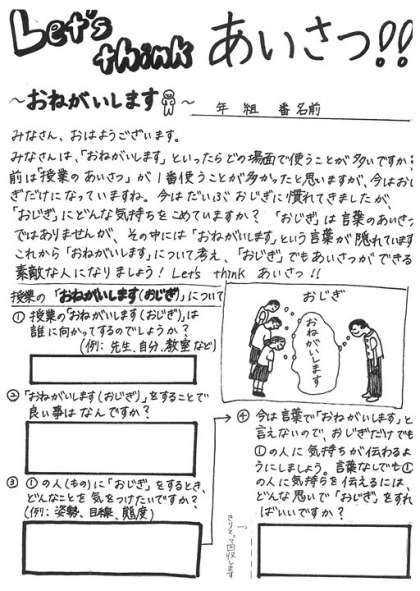 Let's think あいさつ!!
~おねがいします~
年 組 番 名前
みなさん、おはようございます。
みなさんは、「おねがいします」といったらどの場面で使うことが多いですか?
前は「授業のあいさつ」が1番使うことが多かったと思いますが、今はおじ
ぎだけになっていますね。今はだいぶおじぎに慣れてきましたが、
「おじぎ」にどんな気持ちをこめていますか? 「おじぎ」は言葉のあいさつ
ではありませんが、その中には「おねがいします」という言葉が隠れています
これから「おねがいします」について考え、「おじぎ」でもあいさつができる
素敵な人になりましょう! Let's think あいさつ!!
授業の「おねがいします(おじぎ)」について
① 授業の「おねがいします(おじぎ)」は
誰に向かってするのでしょうか?
(例: 先生、自分、教室など)
② 「おねがいします(おじぎ)」をすることで
良い事はなんですか?
③ ①の人(もの)に「おじぎ」をするとき、
どんなことを気をつけたいですか?
(例: 姿勢、目線、態度)
おじぎ
おねがいします
④ 今は言葉で「おねがいします」と
言えないので、おじぎだけでも
①の人に気持ちが伝わるよ
うにしましょう。言葉なしでも①
の人に気持ちを伝えるには、
どんな思いで「おじぎ」をすれ
ばいいですか?
きりとって回収します